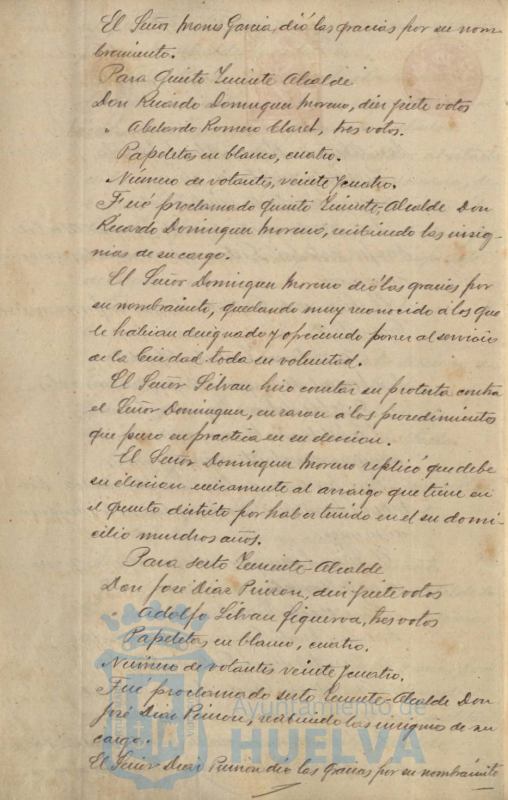 El Señor Mones Garcia, dió las gracias por su nom-
bramiento.
Para Quinto Teniente Alcalde
Don Ricardo Dominguez Moreno, diez y siete votos
" Abelardo Romero Claret, tres votos.
Papeletas en blanco, cuatro.
Número de votantes, veinte y cuatro.
Fué proclamado Quinto Teniente-Alcalde Don
Ricardo Dominguez Moreno, recibiendo las insig-
nias de su cargo.
El Señor Dominguez Moreno dió las gracias por
su nombramiento, quedando muy reconocido á los que
le habian designado y ofreciendo poner al servicio
de la Ciudad toda su voluntad.
El Señor Silvan hizo constar su protesta contra
el Señor Dominguez, en razon á los procedimientos
que puso en practica en su eleccion.
El Señor Dominguez Moreno replicó que debe
su eleccion unicamente al arraigo que tiene en
el quinto distrito por haber tenido en el su domi-
cilio muchos años.
Para sexto Teniente-Alcalde
Don José Diaz Pinzon, diez y siete votos
" Adolfo Silvan Figueroa, tres votos
Papeletas en blanco, cuatro.
Número de votantes veinte y cuatro.
Fué proclamado sexto Teniente-Alcalde Don
José Diaz Pinzon, recibiendo las insignias de su
cargo.
El Señor Diaz Pinzon dió las gracias por su nombramiento
Ayuntamiento de
HUELVA